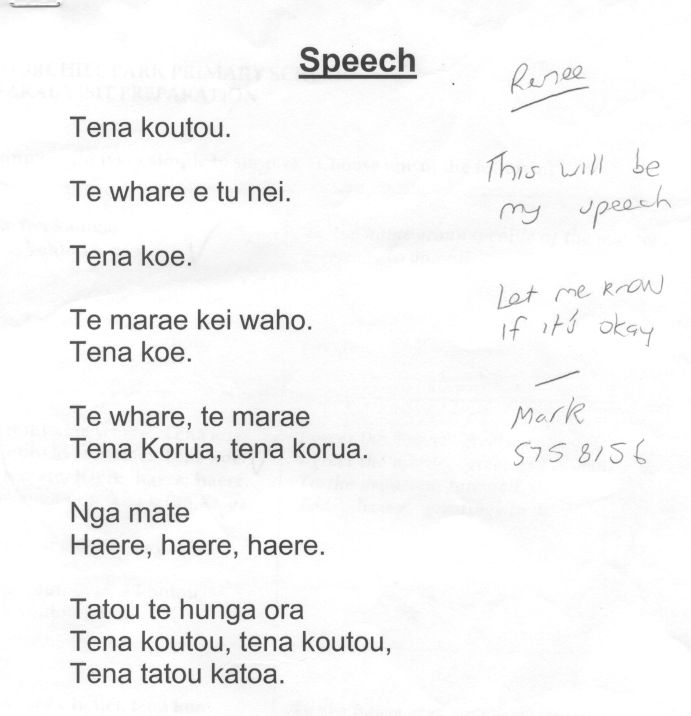 Speech
Renee
Tena koutou.
This will be
Te whare e tu nei.
my speech
Tena koe.
Let me know
Te marae kei waho.
if it's okay
Tena koe.
Te whare, te marae
Mark
Tena Korua, tena korua.
575 8156
Nga mate
Haere, haere, haere.
Tatou te hunga ora
Tena koutou, tena koutou,
Tena tatou katoa.